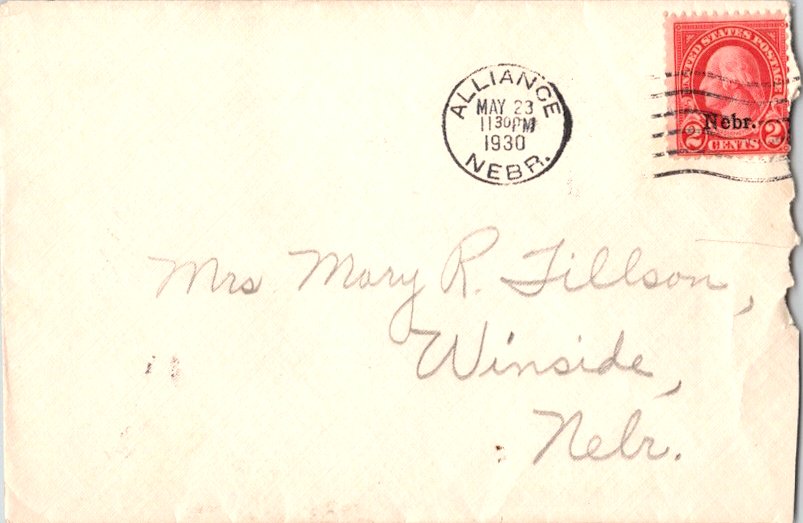 ALLIANCE
MAY 23
11 30 PM
1930
NEBR.
UNITED STATES POSTAGE
Nebr.
2 CENTS 2
Mrs Mary R. Tillson,
Winside,
Nebr.